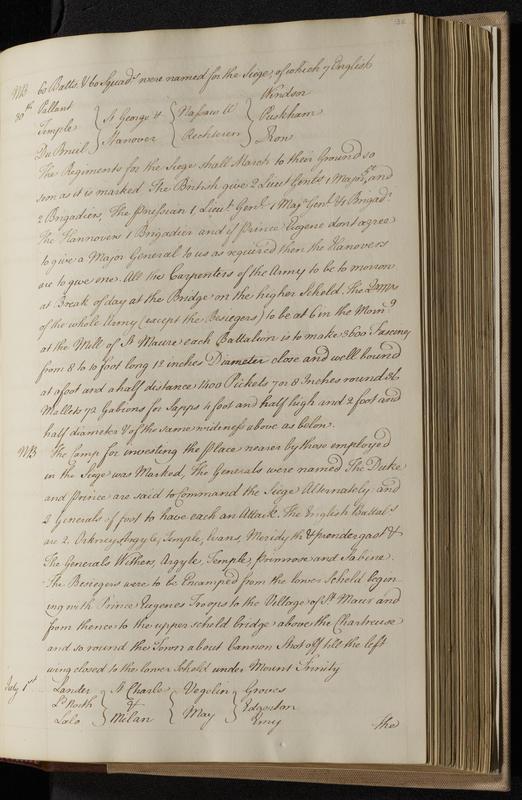 NB 60 Batts. & 60 Squads. were named for the Siege, of which 7 English
30th Vallant } St George & { Nassaw W } Windon
Temple } Hanover { Rechteren } Puskham
Du Breuil } Prow
The Regiments for the Siege shall March to their Ground so
soon as it is marked. The British give 2 Lieut Genls 1 Major Gl and
2 Brigadiers, The Prussian 1 Lieut Genl. 1 Majr Genl & 1 Brigadr.
The Hannovers 1 Brigadier and if Prince Eugene dont agree
to give a Major General to us as required then the Hanovers
are to give one. All the Carpenters of the Army to be to morrow
at Break of day at the Bridge on the higher Scheld. The
of the whole Army (except the Besiegers) to be at 6 in the Morng
at the Mill of St Maure each Battalion is to make 3600 Fascines
from 8 to 10 foot long 12 inches Diameter close and well bound
at a foot and a half distance 1400 Pickets 7 or 8 Inches round 36
Mallets 72 Gabions for Sapps 4 foot and half high and 2 foot and
half diameter & of the same wideness above as below.
NB The Camp for investing the Place nearer by those employed
in the Siege was Marked, The Generals were named The Duke
and Prince are said to Command the Siege Alternately and
2 Generals of foot to have each an Attack. The English Battals
are 2. Orkneys Argyle, Temple, Evans, Meridyth & prendergast &
The Generals Withers, Argyle, Temple, Primrose and Sabine.
The Besiegers were to be Encamped from the lower Scheld begin
ing with Prince Eugenes Troops to the Village of St Maur and
from thence to the upper scheld bridge above the Chartreuse
and so round the Town about Cannon Shot off till the left
wing closed to the lower Scheld under Mount Trinity
July 1st Lander } St Charle { Vegelin } Groves
Ld North } & { May } Edgerton
Lalo } Milan { } Emy
the